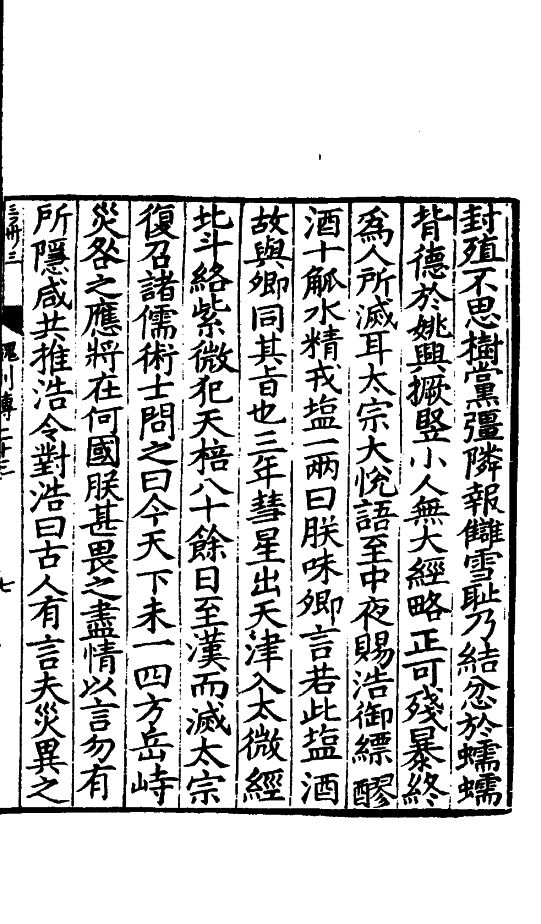 封殖不思樹黨彊隣報讎雪恥乃結忿於蠕蠕
背德於姚興撅竪小人無大經略正可殘暴終
爲人所滅耳太宗大恱語至中夜賜浩御縹醪
酒十觚水精戎塩一兩曰朕味卿言若此塩酒
故與卿同其旨也三年彗星出天津入太微經
北斗絡紫微犯天棓八十餘日至漢而滅太宗
復召諸儒術士問之曰今天下未一四方岳峙
災咎之應將在何國朕甚畏之盡情以言勿有
所隱咸共推浩令對浩曰古人有言夫災異之
三卌三
魏列傳二十三
七